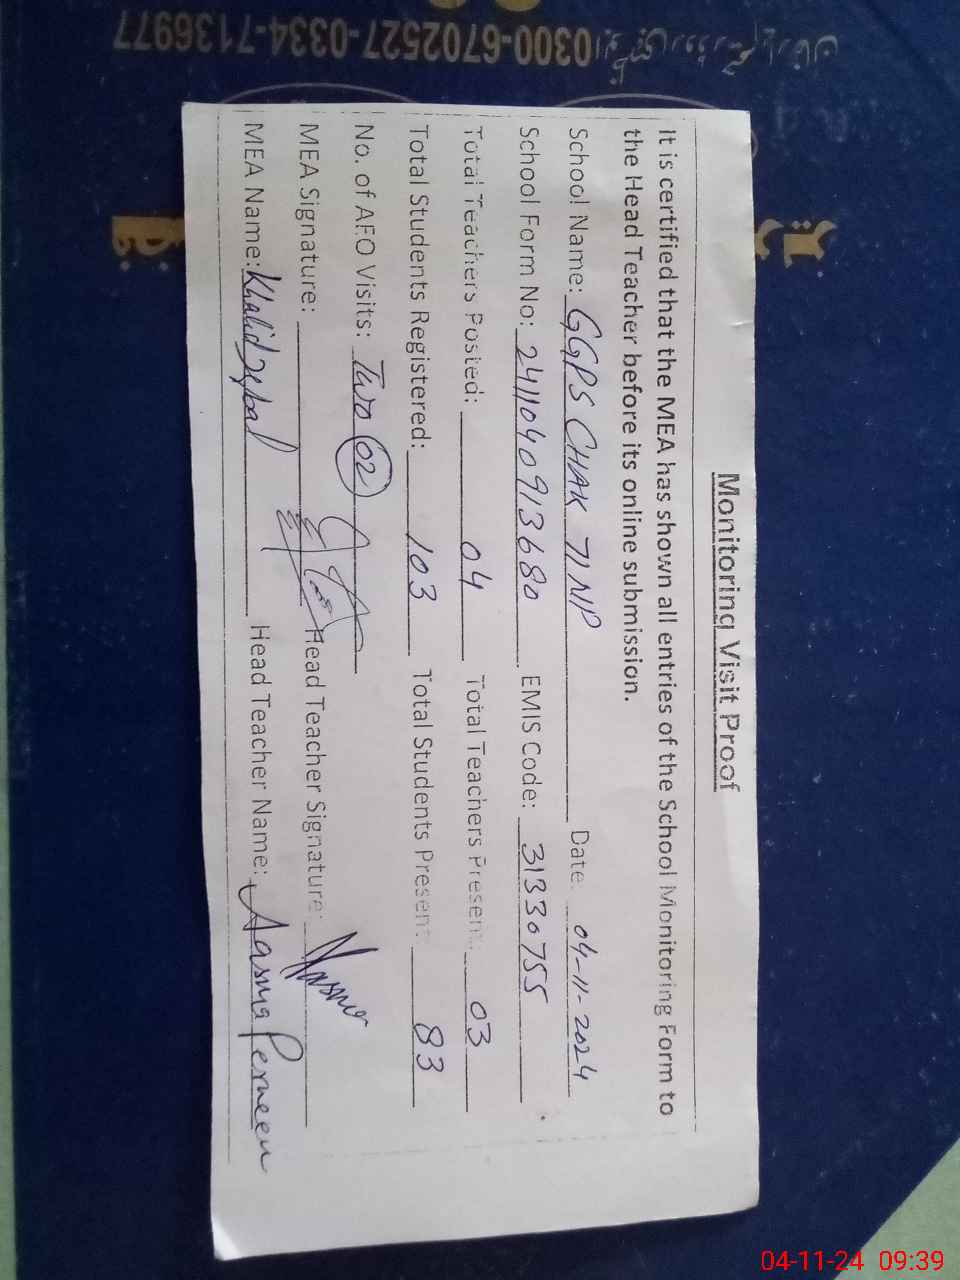 Monitoring Visit Proof
It is certified that the MEA has shown all entries of the School Monitoring Form to
the Head Teacher before its online submission.
School Name: GGPS CHAK 71 NP Date: 04-11-2024
School Form No: 2411040913680 EMIS Code: 31330755
Total Teachers Posted: 04 Total Teachers Present: 03
Total Students Registered: 103 Total Students Present: 83
No. of AEO Visits: Two 02
MEA Signature: Head Teacher Signature:
MEA Name: Khalid Iqbal Head Teacher Name: Aasma Perveen
0300-6702527-0334-7136977
04-11-24 09:39